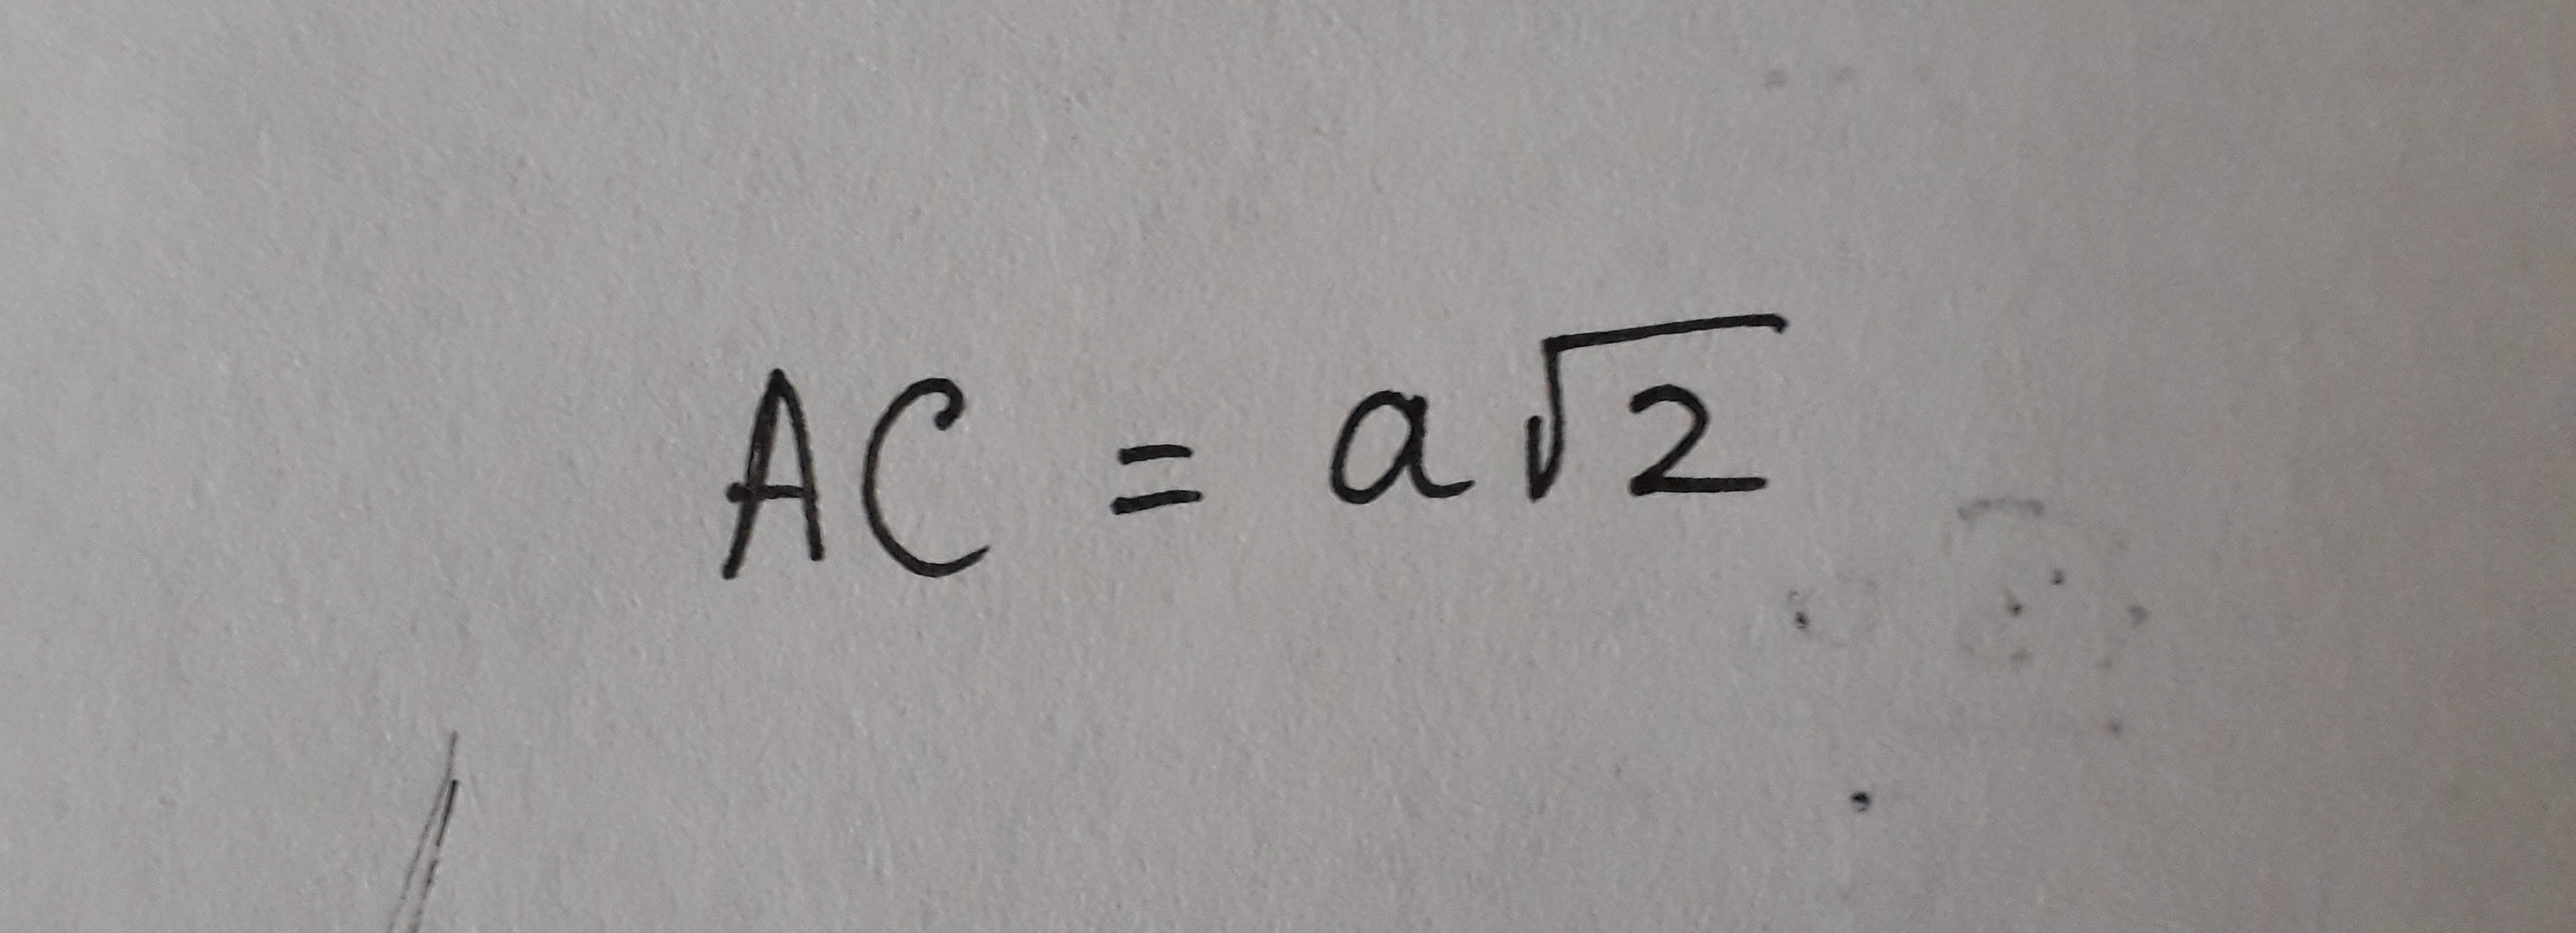 AC = a√2